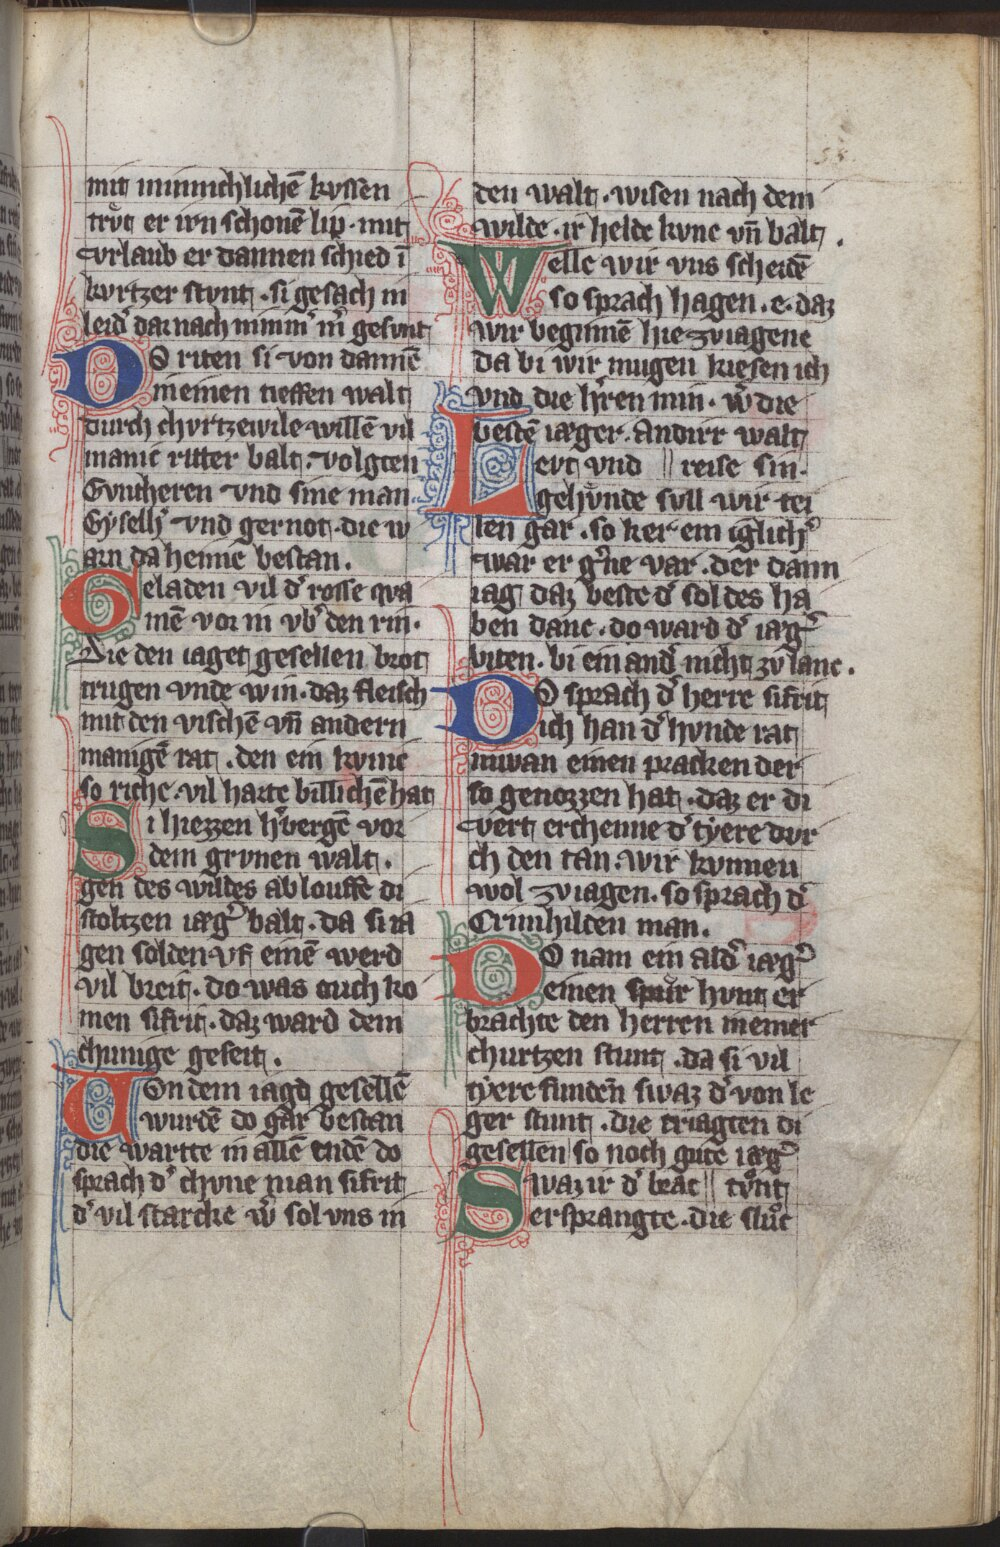 58
mit minnichlichē kvssen
trvͦt er irn schonē lip · mit
vrlaub er dannen schied ī
kvrtzer stvnt · si gesach in
leid͛ dar nach nimm͛ m͛ gesvnt
DO riten si von dannē
in einen tieffen walt
durch chvrtzewile willē vil
manic ritter balt · volgten
Gvntheren vnd sine man ·
Gysell͛ vnd gernot · die w
arn da heime bestan .
Geladen vil d͛ rosse qva
mē vor in vb͛ den rin ·
Die den iaget gesellen brot
trugen vnde win · daz fleisch
mit den vischē vn̄ andern
manigē rat . den ein kvnic
so riche · vil harte billichē hat
Si hiezzen h͛bergē vor
dem grvnen walt .
gen des wildes ablouffe di
stoltzen iæg͛ balt · da si ia
gen solden · vf einē werd
vil breit · do was ouch ko
men sifrit · daz ward dem
chunige geseit .
Von dem iagd gesellē
wurdē do gar bestan
die wartte in allē endē do
sprach d͛ chvne man sifrit
d͛ vil starcke w͛ sol vns in
den walt · wisen nach dem
wilde · ir helde kvne vn̄ balt .
Welle wir vns scheidē
so sprach hagen . e · daz
wir beginnē hie zv iagene
da bi wir mugen kiesen ich
vnd die h͛ren min · w͛ die
bestē iæger . Andirr walt
Levt vnd reise sin ·
gehvnde svll wir tei
len gar · so ker ein iglich͛
war er g͛ne var . der dann
iag daz beste d͛ sol des ha
ben danc · do ward d͛ iæg͛
biten · bi ein and͛ nicht zv lanc .
DO sprach d͛ herre sifrit
ich han d͛ hvnde rat
niwan einen pracken der
so genozzen hat · daz er di
vert erchenne d͛ tyere dvr
ch den tan · wir kvnnen
wol zv iagen · so sprach d͛
Crimhilten man .
DO nam ein ald͛ iæg͛
einen spur hvnt er
brachte den herren in einer
churtzen stunt . da si vil
tyere funden swaz d͛ von le
ger stunt · die eriagten di
gesellen so noch gute iæg͛
Swaz ir d͛ brac tvͦnt
ersprangte · die slvͦc